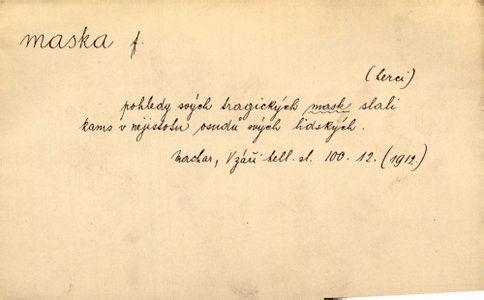 maska f.
(herci)
pohledy svých tragických mask slali
kams v nejistotu osudů svých lidských.
Machar, V záři hell. sl. 100. 12. (1912)